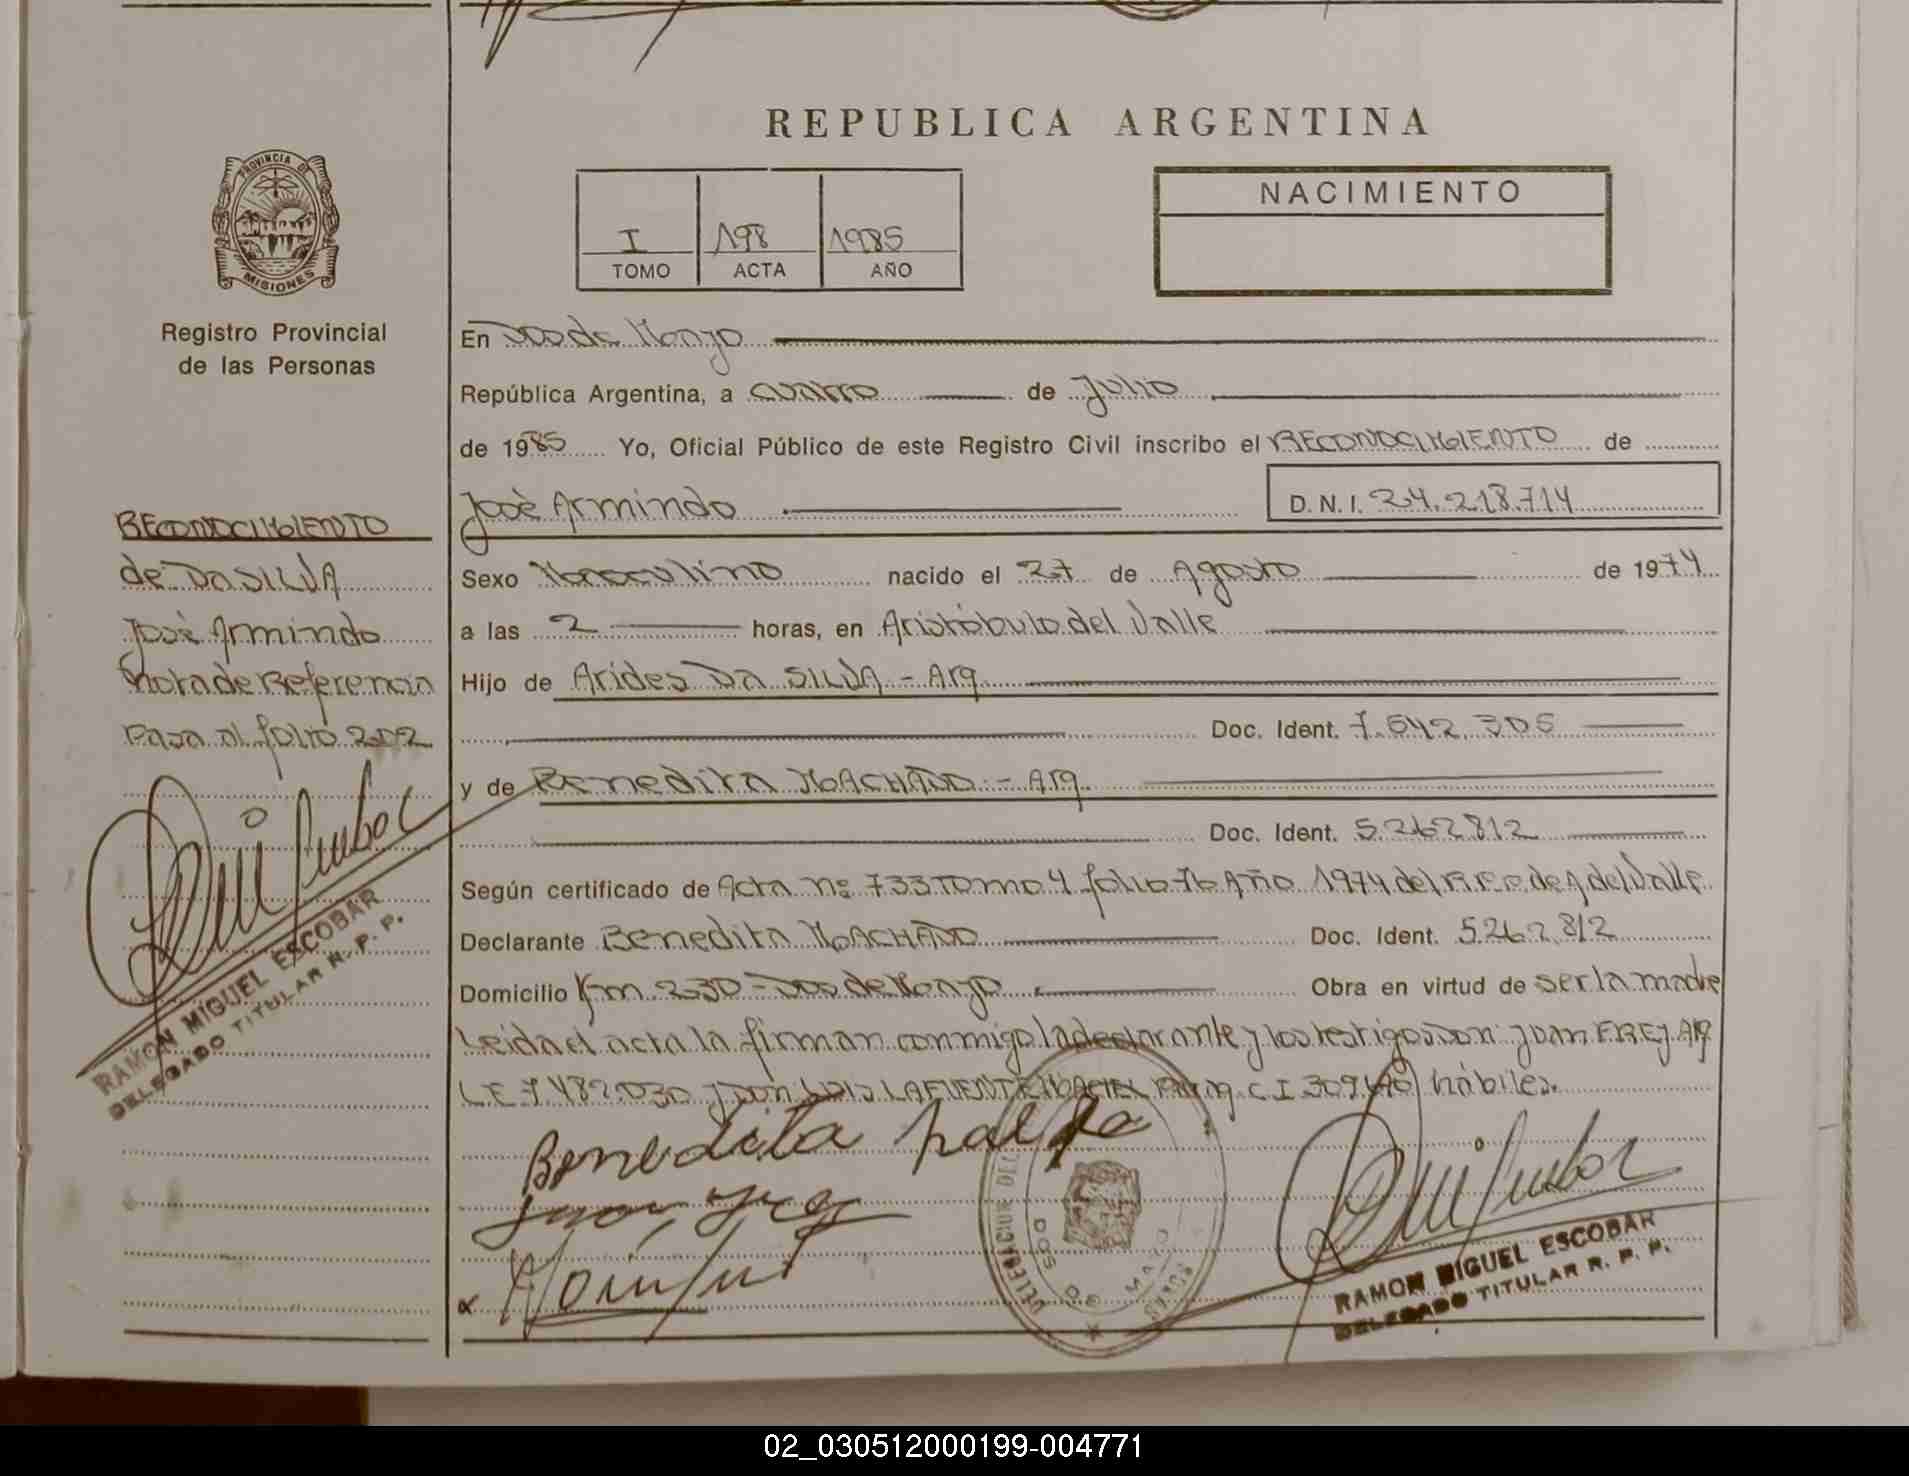 REPUBLICA ARGENTINA
PROVINCIA DE
MISIONES
Registro Provincial
de las Personas
I 198 1985
TOMO ACTA AÑO
NACIMIENTO
En Dos de Mayo
República Argentina, a cuatro de Julio
de 1985 Yo, Oficial Público de este Registro Civil inscribo el RECONOCIMIENTO de
José Armindo D. N. I. 24.218.714
Sexo Masculino nacido el 27 de Agosto de 1974
a las 2 horas, en Aristóbulo del Valle
Hijo de Arides DA SILVA - Arg
Doc. Ident. 7.642.305
y de Benedita MACHADO - Arg.
Doc. Ident. 5262812
Según certificado de Acta nº 733 Tomo 4 folio 76 Año 1974 del de A del Valle
Declarante Benedita MACHADO Doc. Ident. 5262.812
Domicilio Km 230 - Dos de Mayo Obra en virtud de ser la madre
Leida el acta la firman conmigo la declarante y los testigos Don Juan FREY Arg
LE 7482.030 y Don Luis LAFUENTE MACIEL C I hábiles.
RECONOCIMIENTO
de DA SILVA
José Armindo
nota de Referencia
Pasa al folio 202
RAMON MIGUEL ESCOBAR
DELEGADO TITULAR R. P. P.
Benedita
Juan Frey
DOS DE MAYO
RAMON MIGUEL ESCOBAR
DELEGADO TITULAR R. P. P.
02_030512000199-004771